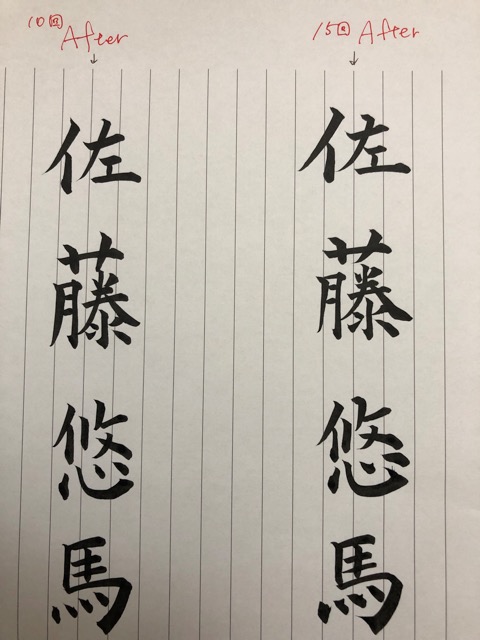 10回
After
↓
佐藤悠馬
15回 After
↓
佐藤悠馬